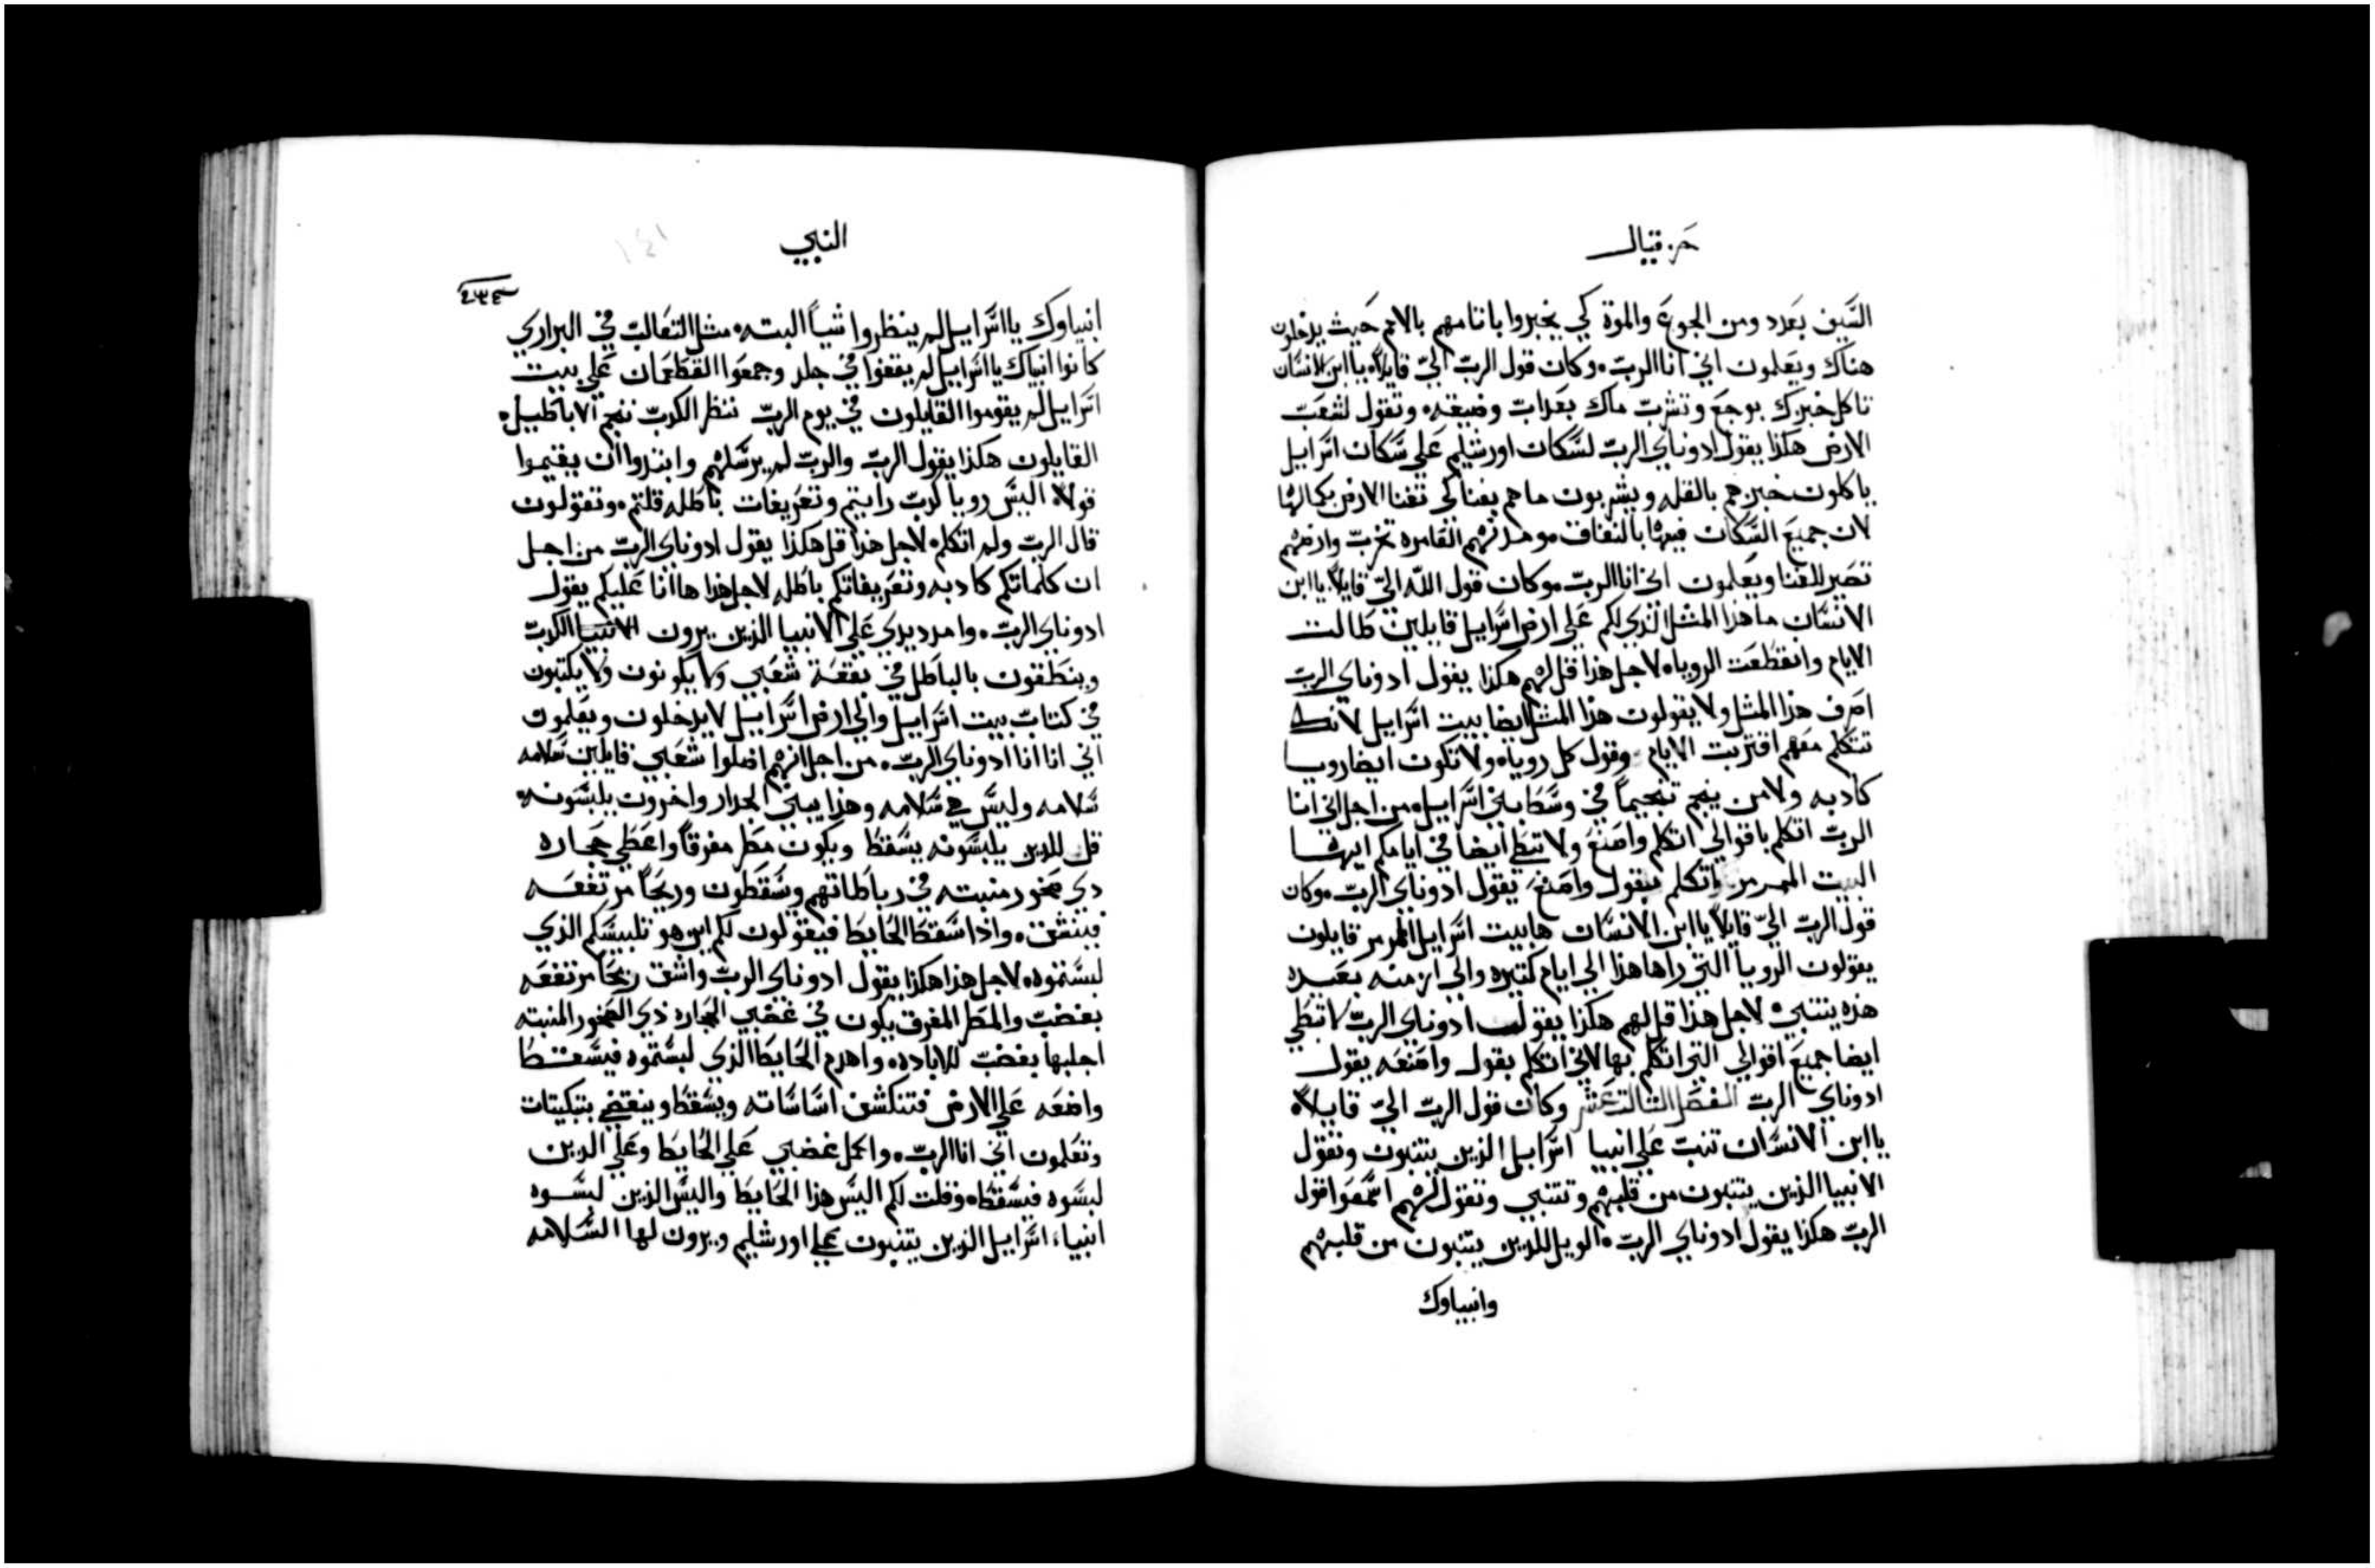 حزقيال
السَّيف بعَدد ومن الجوعَ والموة كي يخبروا باثامهم بالامم حَيث يدخلون
هناك ويعَلمون اني انا الرب وكان قول الربّ اليّ قايلاً يا ابن الانسَان
تاكل خبزك بوجعَ وتشرب ماك بعَداب وضيقه وتقول لشعَب
الارض هكذا يقول ادوناي الربّ لسَكان اورشليم عَلي سَكان اسَرايل
ياكلون خبزهم بالقله ويشربون ماهم بفنا لكي تفنا الارض بكمالها
لان جميعَ السَكان فيها بالنفاق ومدنهم العَامره تخرب وارضهم
تصَير للفنا ويعَلمون اني انا الربّ وكان قول اللّه اليّ قايلاً يا ابن
الانسَان ما هذا المثل الذي لكم عَلي ارض اسَرايل قايلين طالت
الايام وانقطعَت الرويا لاجل هذا قل لهم هكذا يقول ادوناي الربّ
اصَرف هذا المثل ولا يقولون هذا المثل ايضا بيت اسَرايل لانك
تتكلم معَهم اقتربت الايام وقول كل رويا ولا تكون ايضا رويا
كادبه ولا من ينجم تنجيماً في وسَط بني اسَرايل من اجل اني انا
الربّ اتكلم باقوالي اتكلم واصَنعَ ولا تبطي ايضا في ايامكم ايها
البيت الممرمر اتكلم بقول واصَنعَ يقول ادوناي الربّ وكان
قول الربّ اليّ قايلاً يا ابن الانسَان ها بيت اسَرايل الممرمر قايلون
يقولون الرويا التي راها هذا الي ايام كتيره والي ازمنه بعَيده
هذه يتنبي لاجل هذا قل لهم هكذا يقول ادوناي الربّ لا تبطي
ايضا جميعَ اقوالي التي اتكلم بها لاني اتكلم بقول واصَنعَه يقول
ادوناي الربّ الفصَل الثالت عَشر وكان قول الربّ اليّ قايلاً
يا ابن الانسَان تنبت عَلي انبيا اسَرايل الذين يتنبون وتقول
الانبيا الذين يتنبون من قلبهم وتتنبي وتقول لهم اسَمعَوا قول
الربّ هكذا يقول ادوناي الربّ الويل للدين يتنبون من قلبهم
وانبياوك
النبي
١٤١
انبياوك يا اسَرايل لم ينظروا شياً البته مثل التعَالب في البراري
كانوا انبياك يا اسَرايل لم يقفوا في جلد وجمعَوا القطعَان عَلي بيت
اسَرايل لم يقوموا القايلون في يوم الربّ ننظر الكدب ننجم الاباطيل
القايلون هكذا يقول الربّ والربّ لم يرسَلهم وابتدوا ان يقيموا
قولاً اليسَ رويا كدب رايتم وتعَريفات باطله قلتم وتقولون
قال الربّ ولم اتكلم لاجل هذا قل هكذا يقول ادوناي الربّ من اجل
ان كلماتكم كادبه وتعَريفاتكم باطله لاجل هذا ها انا عَليكم يقول
ادوناي الربّ وامد يدي عَلي الانبيا الذين يرون الكدب
وينطقون بالباطل في بقعَة شعَبي ولا يكونون ولا يكتبون
في كتاب بيت اسَرايل والي ارض اسَرايل لا يدخلون ويعَلمون
اني انا انا ادوناي الربّ من اجل انهم اضلوا شعَبي قايلين سَلامه
سَلامه وليسَ هي سَلامه وهذا يبني الجدار واخرون يلبسَونه
قل للدين يلبسَونه يسَقط ويكون مطر مفرقاً واعَطي حجاره
دي صَخور منبته في رباطاتهم وسَقطون وريحَاً مرتفعَه
فينشق واذا سَقط الحَايط فيقولون لكم اين هو تلبيسَكم الذي
لبسَتموه لاجل هذا هكذا يقول ادوناي الربّ واشق ريحَاً مرتفعَه
بغضب والمطر المفرق يكون في غضبي والحجاره ذي الصَخور المنبته
اجلبها بغضب للاباده واهدم الحَايط الذي لبسَتموه فيسَقط
واضعَه عَلي الارض فتنكشف اسَاسَاته ويسَقط وينقضي بتبكيتات
وتعَلمون اني انا الربّ واكمل غضبي عَلي الحَايط وعَلي الدين
لبسَوه فيسَقط وقلت لكم اليسَ هذا الحَايط واليسَ الذين لبسَوه
انبياء اسَرايل الذين يتنبون عَلي اورشليم ويرون لها السَلامه